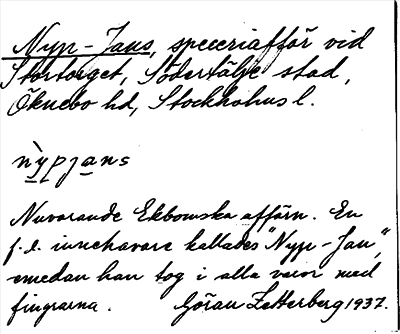 Nyp-Jans, speceriaffär vid
Stortorget, Södertälje stad,
Öknebo hd, Stockholms l.
nỳpjans
Nuvarande Ekbomska affärn. En
f.d. innehavare kallades "Nyp-Jan",
emedan han tog i alla varor med
fingrarna. Göran Zetterberg 1937.